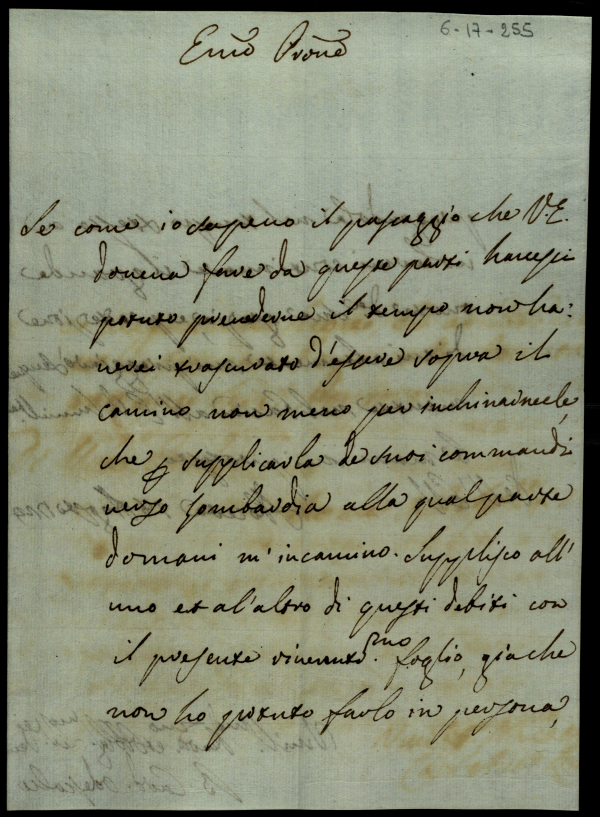 6-17-255
Emo Prone
Se come io sapevo il passaggio che V.E.
doveva fare da queste parti havessi
potuto prevederne il tempo non ha:
verei trascurato d'essere sopra il
camino non meno per inchinarmele,
che p supplicarla de suoi commandi
verso Lombardia alla qual parte
domani m'incamino. Supplisco all'
uno et al'altro di questi debiti con
il presente riverentmo. foglio, gia che
non ho potuto farlo in persona,